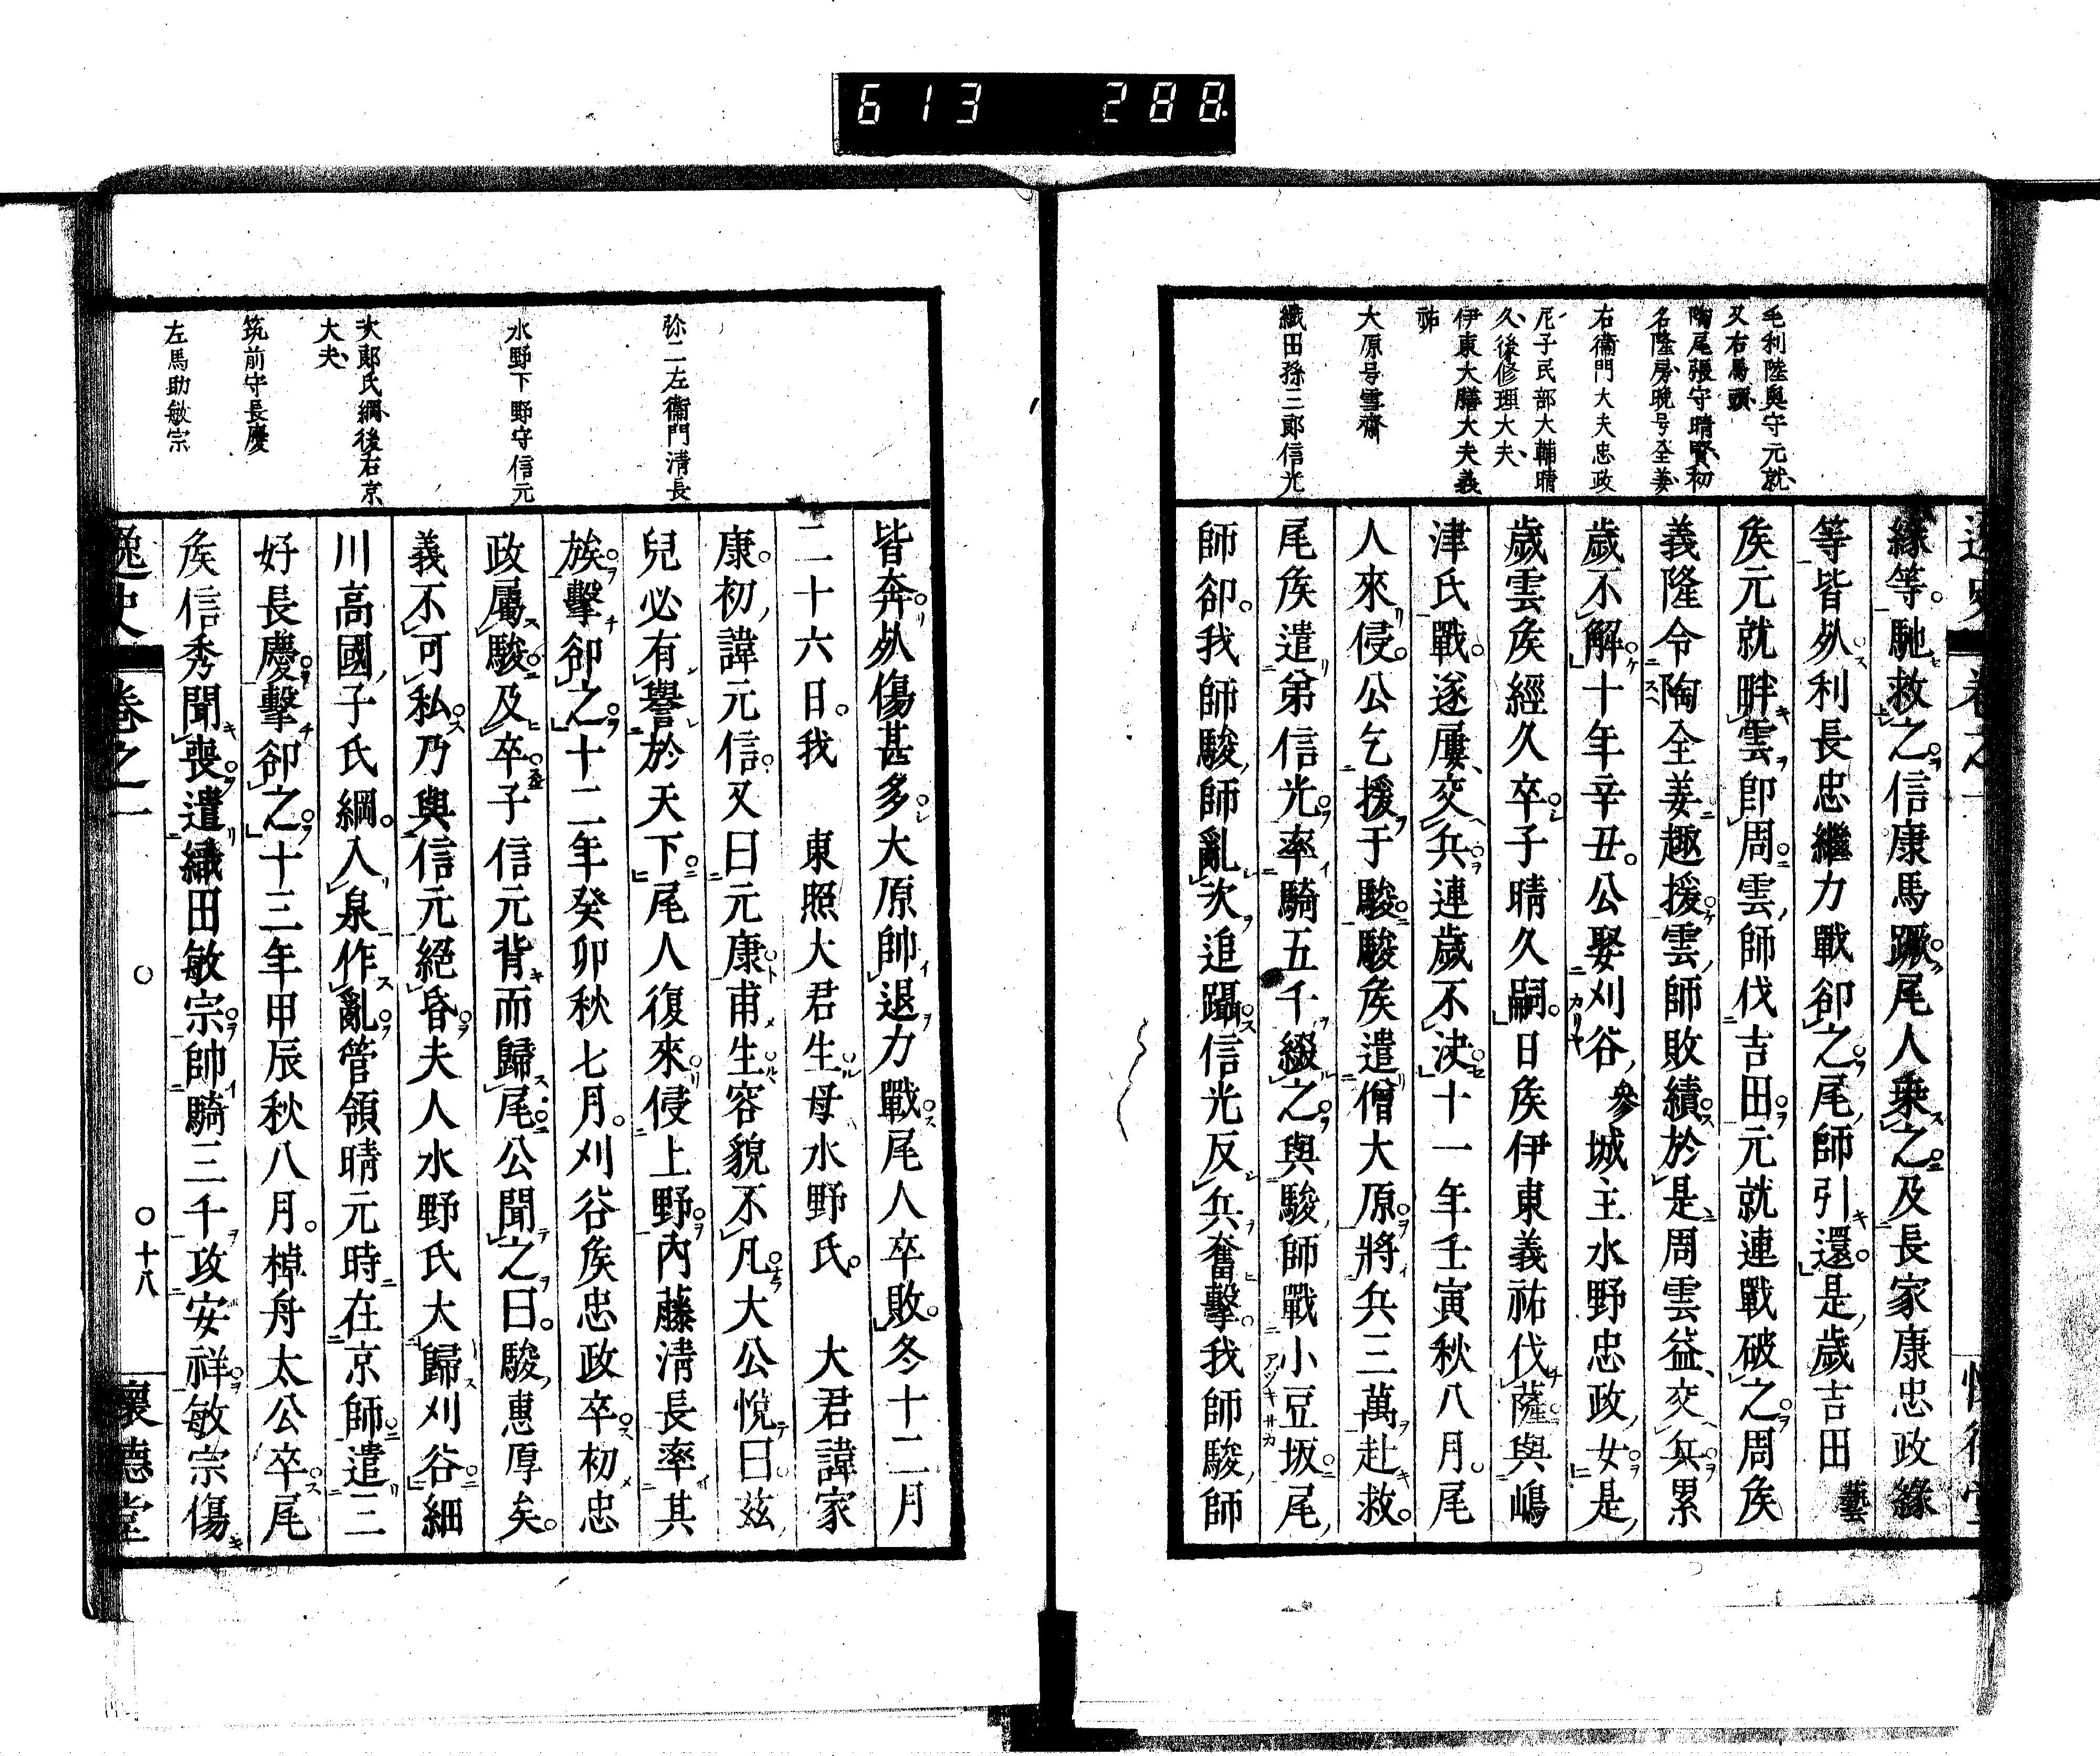 613 288
毛利陸奧守元就、
又右馬頭、
陶尾張守晴賢、初
名隆房、晚号全姜、
右衞門大夫忠政
尼子民部大輔晴
久、後修理大夫、
伊東大膳大夫義
祐
大原号雪齋
織田孫三郎信光
緣等。馳救之。信康馬蹶。尾人乘之。及長家康忠政緣
等皆死。利長忠繼力戰卻之。尾師引還。是歲吉田藝
矦元就畔雲卽周。雲師伐吉田。元就連戰破之。周矦
義隆令陶全姜趣援。雲師敗績。於是周雲益交兵。累
歲不解。十年辛丑。公娶刈谷參城主水野忠政女。是
歲雲矦經久卒。子晴久嗣。日矦伊東義祐伐薩。與嶋
津氏戰。遂屢交兵。連歲不決。十一年壬寅秋八月。尾
人來侵。公乞援于駿。駿矦遣僧大原。將兵三萬赴救。
尾矦遣弟信光。率騎五千綴之。與駿師戰小豆坂。尾
師卻。我師駿師亂次追躡。信光反兵奮擊。我師駿師
皆奔。死傷甚多。大原帥退力戰。尾人卒敗。冬十二月
二十六日。我　東照大君生。母水野氏。　大君諱家
康。初諱元信。又曰元康。甫生容貌不凡。大公悅曰。茲
兒必有譽於天下。尾人復來侵上野。內藤淸長率其
族擊卻之。十二年癸卯秋七月。刈谷矦忠政卒。初忠
政屬駿。及卒子信元背而歸尾。公聞之曰。駿惠厚矣。
義不可私。乃與信元絕昏。夫人水野氏大歸刈谷。細
川高國子氏綱。入泉作亂。管領晴元時在京師。遣三
好長慶擊卻之。十三年甲辰秋八月。棹舟太公卒。尾
矦信秀聞喪。遣織田敏宗帥騎三千攻安祥。敏宗傷
弥二左衞門淸長
水野下野守信元
次郎氏綱、後右京
大夫、
筑前守長慶
左馬助敏宗
逸史　卷之一　十八　懷德堂